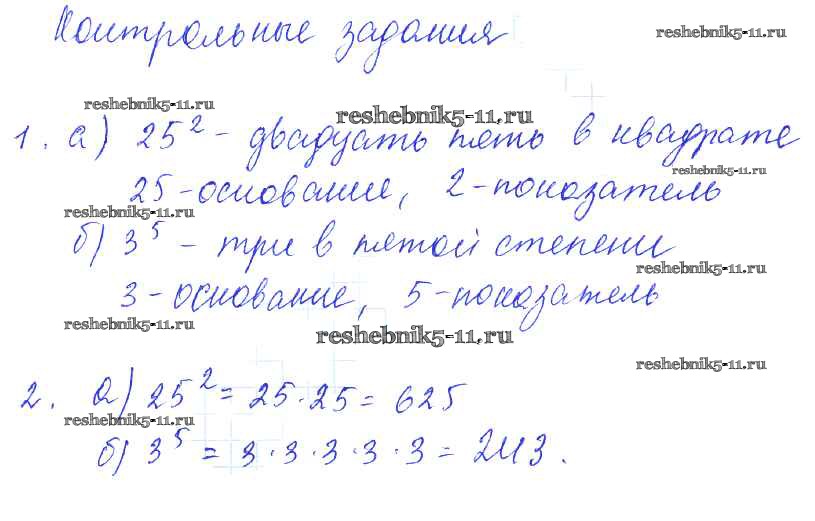 Контрольные задания
reshebnik5-11.ru
reshebnik5-11.ru
reshebnik5-11.ru
1. а) 25² - двадцать пять в квадрате
reshebnik5-11.ru
25-основание, 2-показатель
reshebnik5-11.ru
б) 3⁵ - три в пятой степени
reshebnik5-11.ru
3-основание, 5-показатель
reshebnik5-11.ru
reshebnik5-11.ru
reshebnik5-11.ru
2. а) 25² = 25·25 = 625
reshebnik5-11.ru
б) 3⁵ = 3·3·3·3·3 = 243.